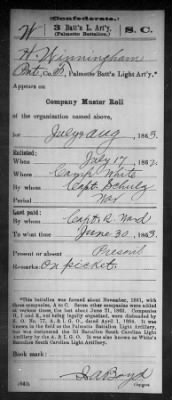 (Confederate.)
W 3 Batt'n L. Art'y, S. C.
(Palmetto Battalion.)
H. Winningham
Pvt, Co. , Palmetto Batt'n Light Art'y.*
Appears on
Company Muster Roll
of the organization named above,
for July & Aug, 1863.
Enlisted:
When July 17, 186
Where Camp White
By whom Capt. Schulz
Period War
Last paid:
By whom Capt. R.
To what time June 30, 1863.
Present or absent Present
Remarks: On picket.
*This battalion was formed about November, 1861, with three companies, A to C. Seven other companies were added at various times, the last about June 21, 1862. Companies
H, I and K, not being legally organized, were disbanded by S. O. No. 77, A. & I. G. O., dated April 1, 1864. It was known in the field as the Palmetto Battalion Light Artillery, but was designated the 3d Battalion South Carolina Light
Artillery by the A. & I. G. O. It was also known as White's Battalion South Carolina Light Artillery.
Book mark:
(642) Boyd
Copyist.